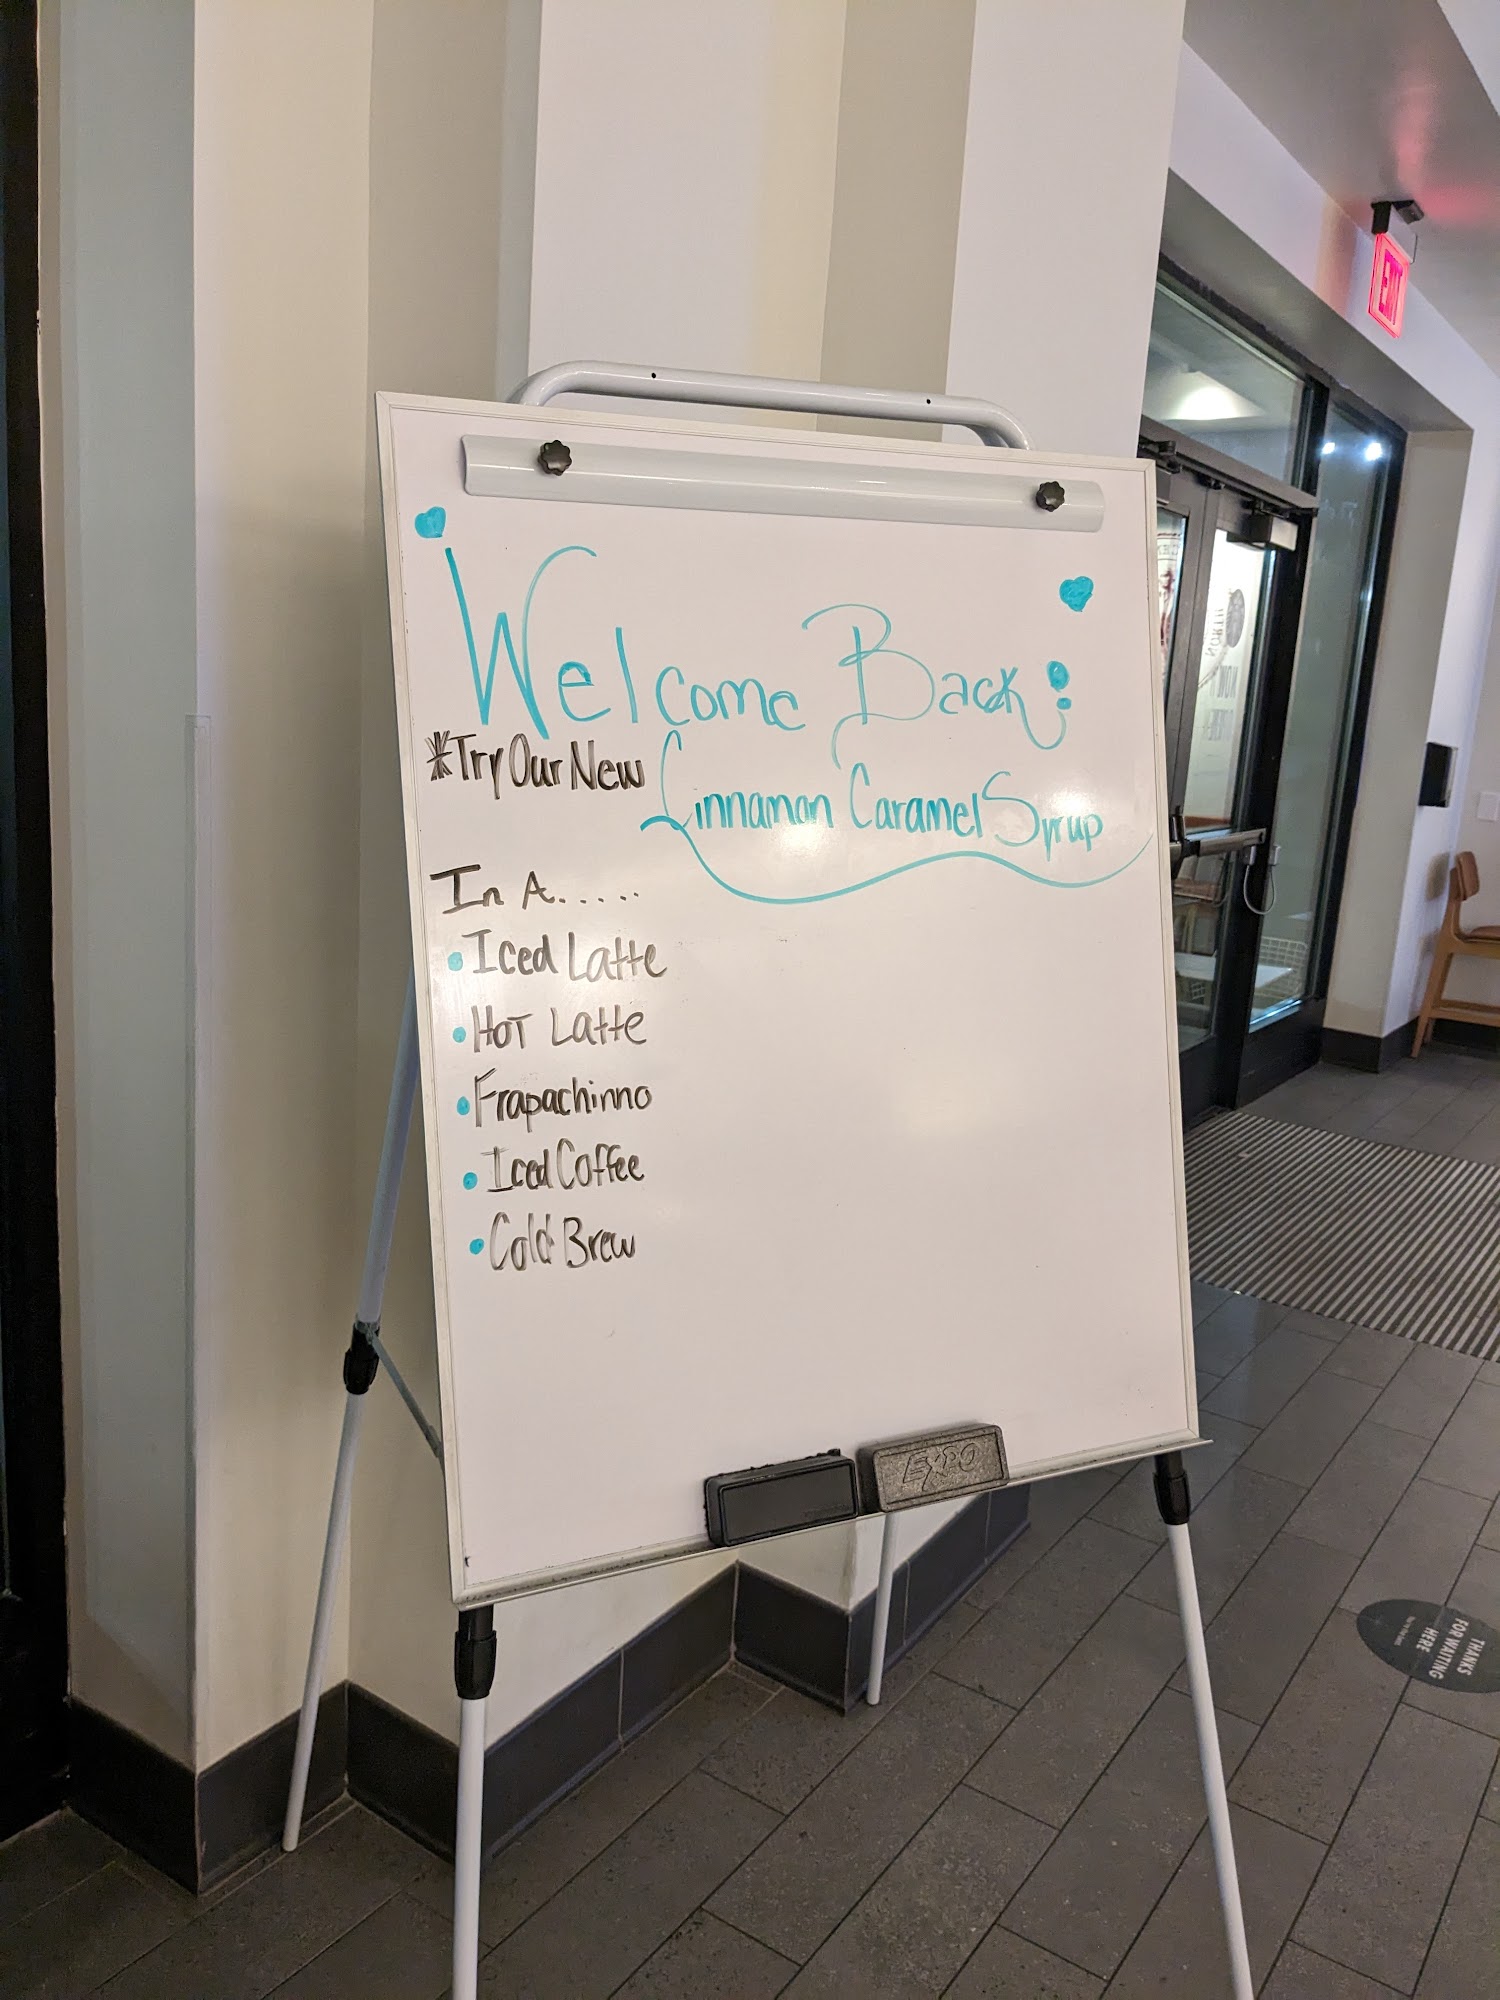 Welcome Back!
*Try Our New Cinnamon Caramel Syrup
In A.....
• Iced Latte
• Hot Latte
• Frapachinno
• Iced Coffee
• Cold Brew
EXPO
EXIT
THANKS
FOR WAITING
HERE